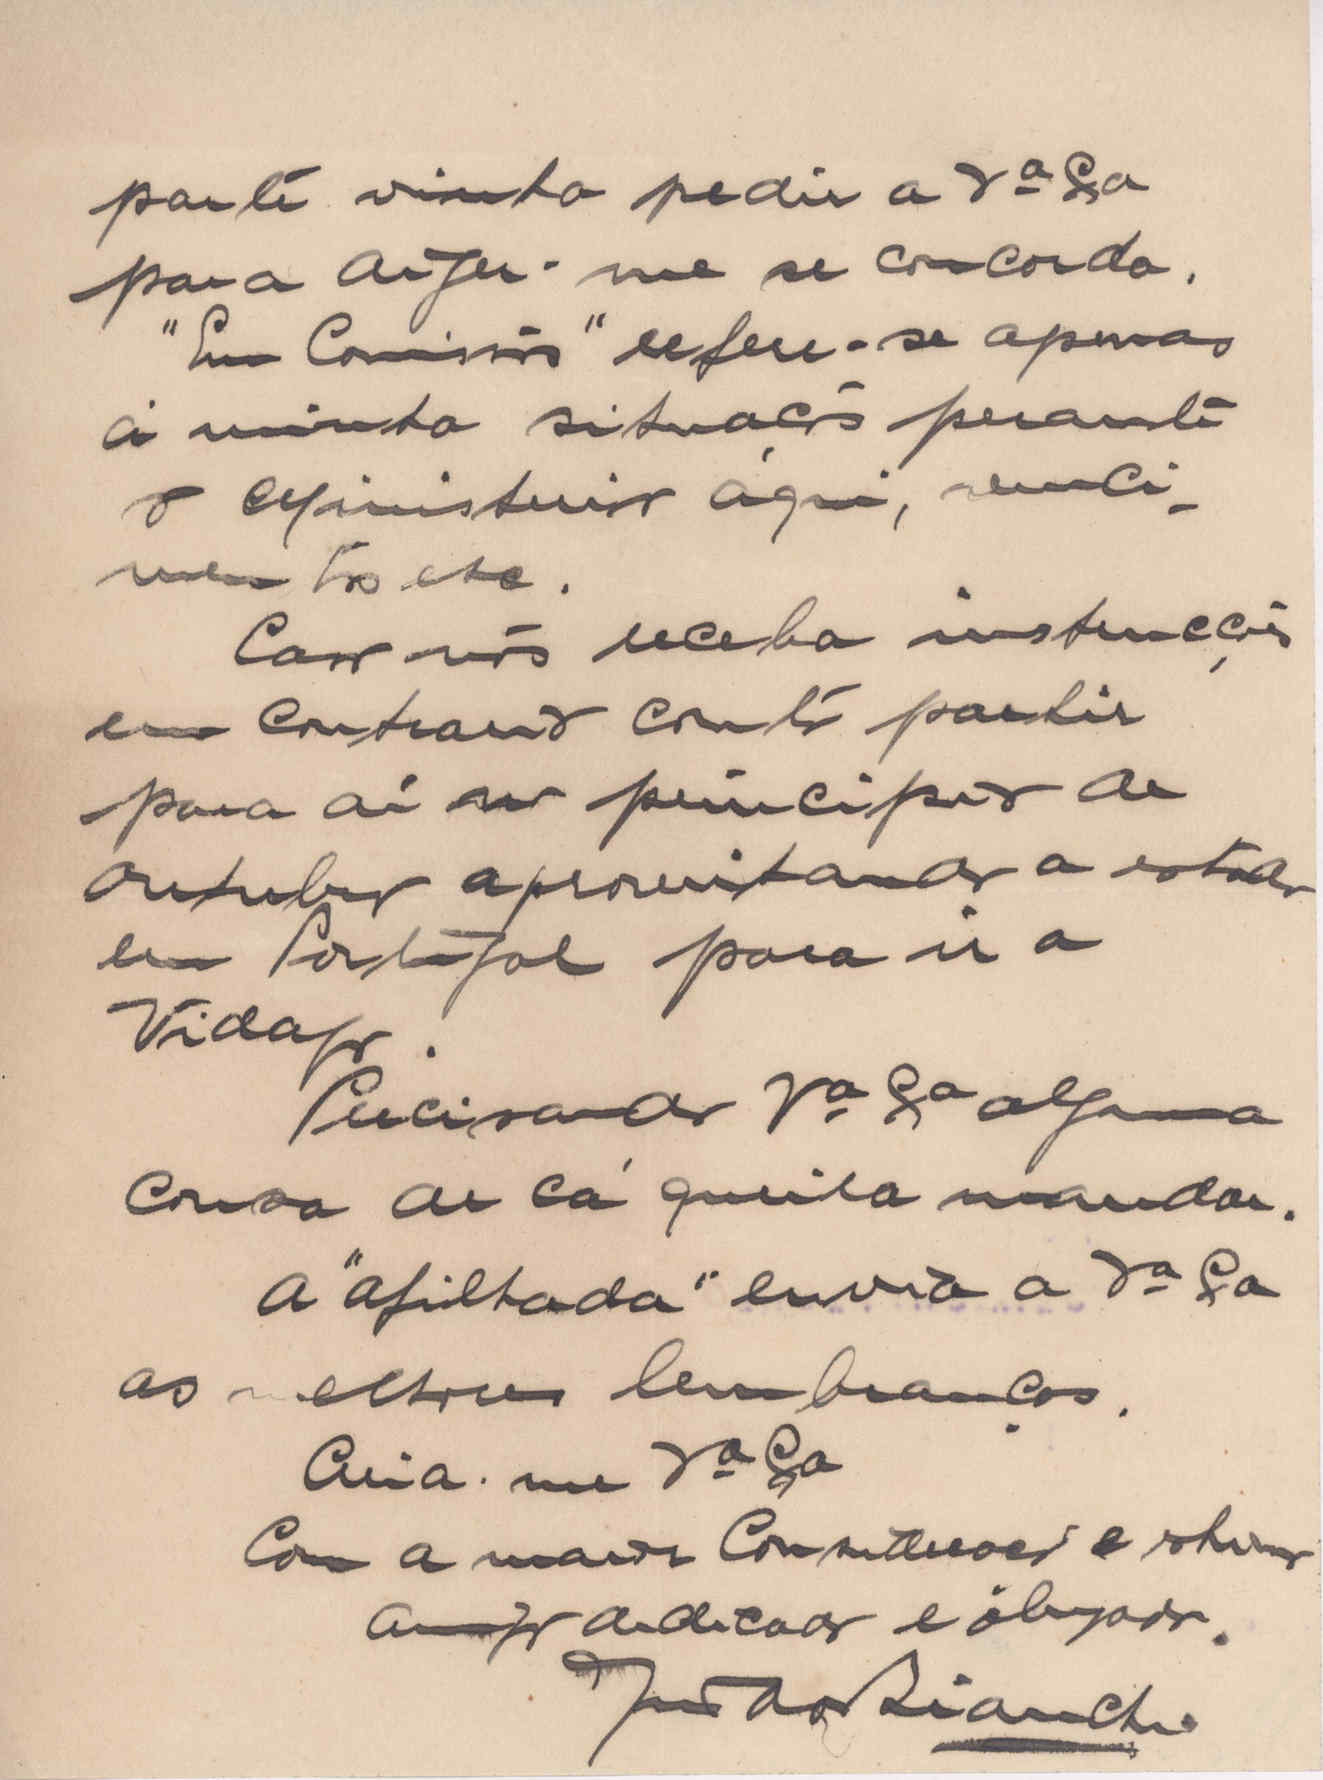 parte vinha pedir a Vª Exª
para dizer-me se concorda.
"Em Comissão" refere-se apenas
á minha situação perante
o Ministerio áqui, venci-
mentos etc.
Caso não receba instrucções
em contrario conto partir
para aí no principio de
Outubro aproveitando a estada
em Portugal para ir a
Vidago.
Precisando Vª Exª alguma
cousa de cá queira mandar.
A "afilhada" envia a Vª Exª
as melhores lembranças.
Creia-me Vª Exª
Com a maior Consideração e estima
amigo dedicado e obrigado.
João de Bianchi